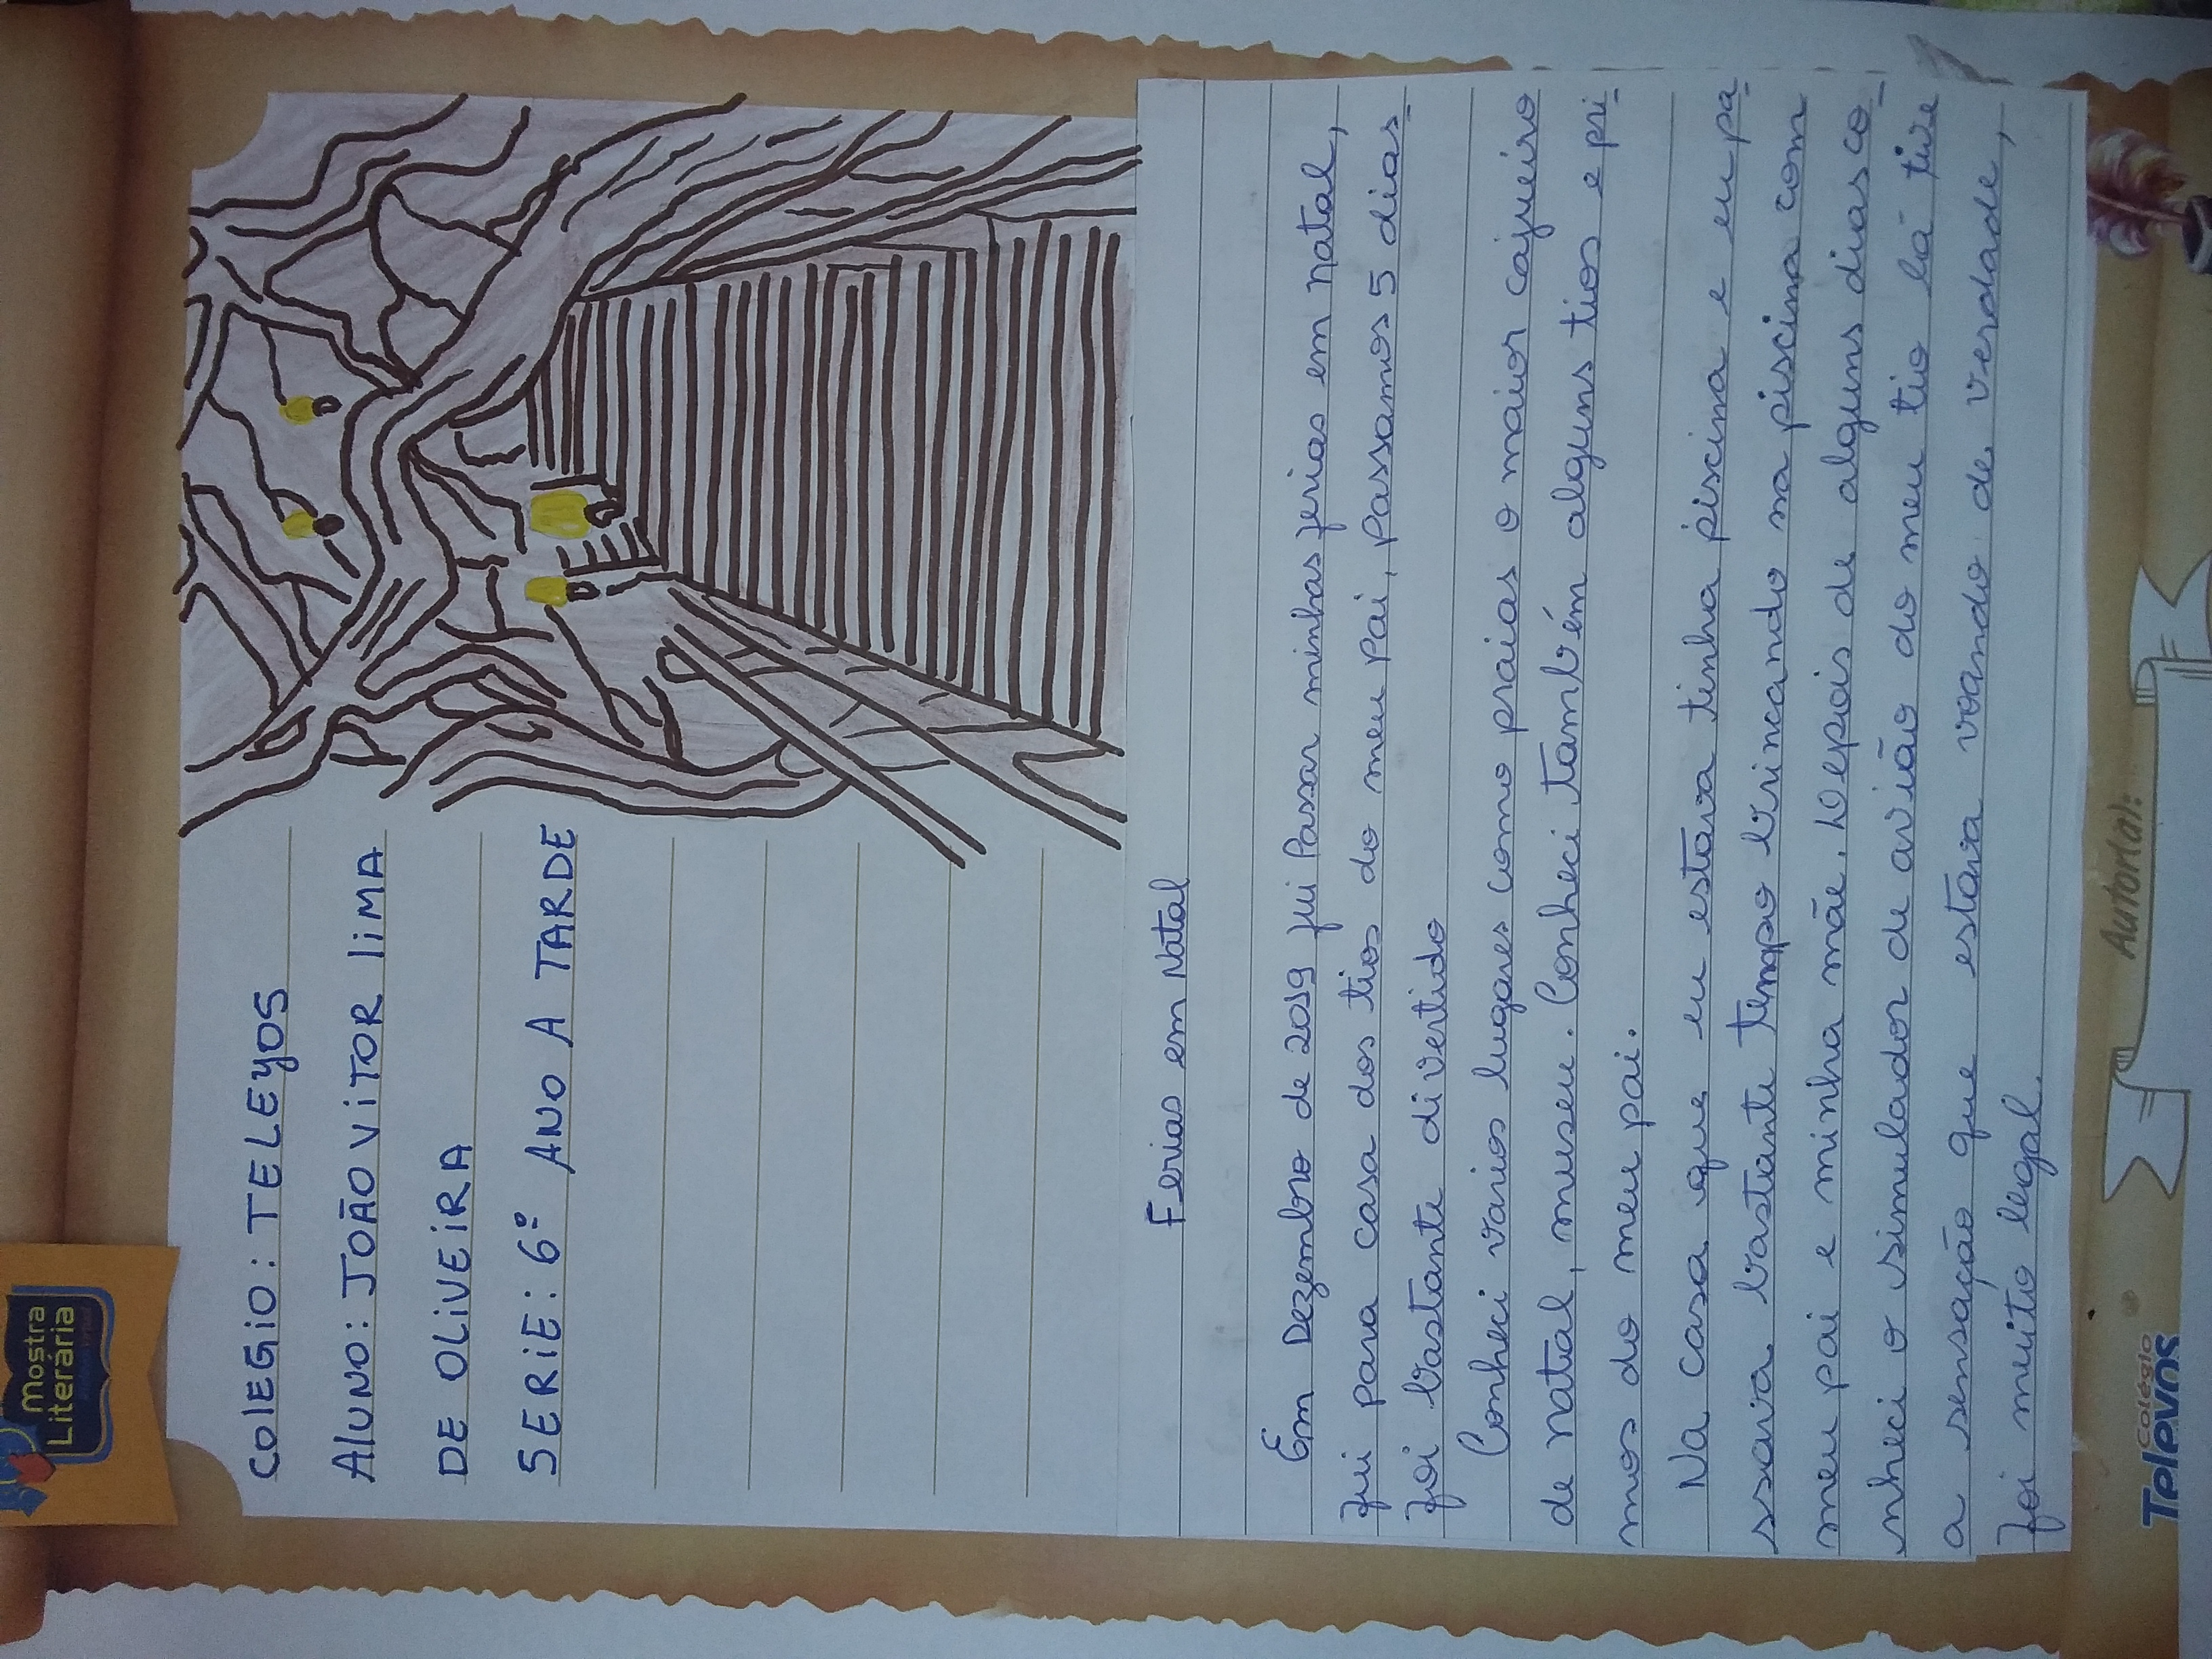 Mostra
Literária
COLEGIO: TELEYOS
ALUNO: JOÃO VITOR LIMA
DE OLIVEIRA
SERIE: 6º ANO A TARDE
Ferias em Natal
Em Dezembro de 2019 fui Passar minhas ferias em natal,
fui para casa dos tios do meu pai, passamos 5 dias
foi bastante divertido
Conheci varios lugares como praias o maior cajueiro
de natal, museu. Conheci também alguns tios e pri-
mos do meu pai.
Na casa que eu estava tinha piscina e eu pa-
ssava bastante tempo brincando na piscina com
meu pai e minha mãe. Depois de alguns dias co-
nheci o simulador de avião do meu tio lá tive
a sensação que estava voando de verdade,
foi muito legal.
Autoria:
Colégio
Televos